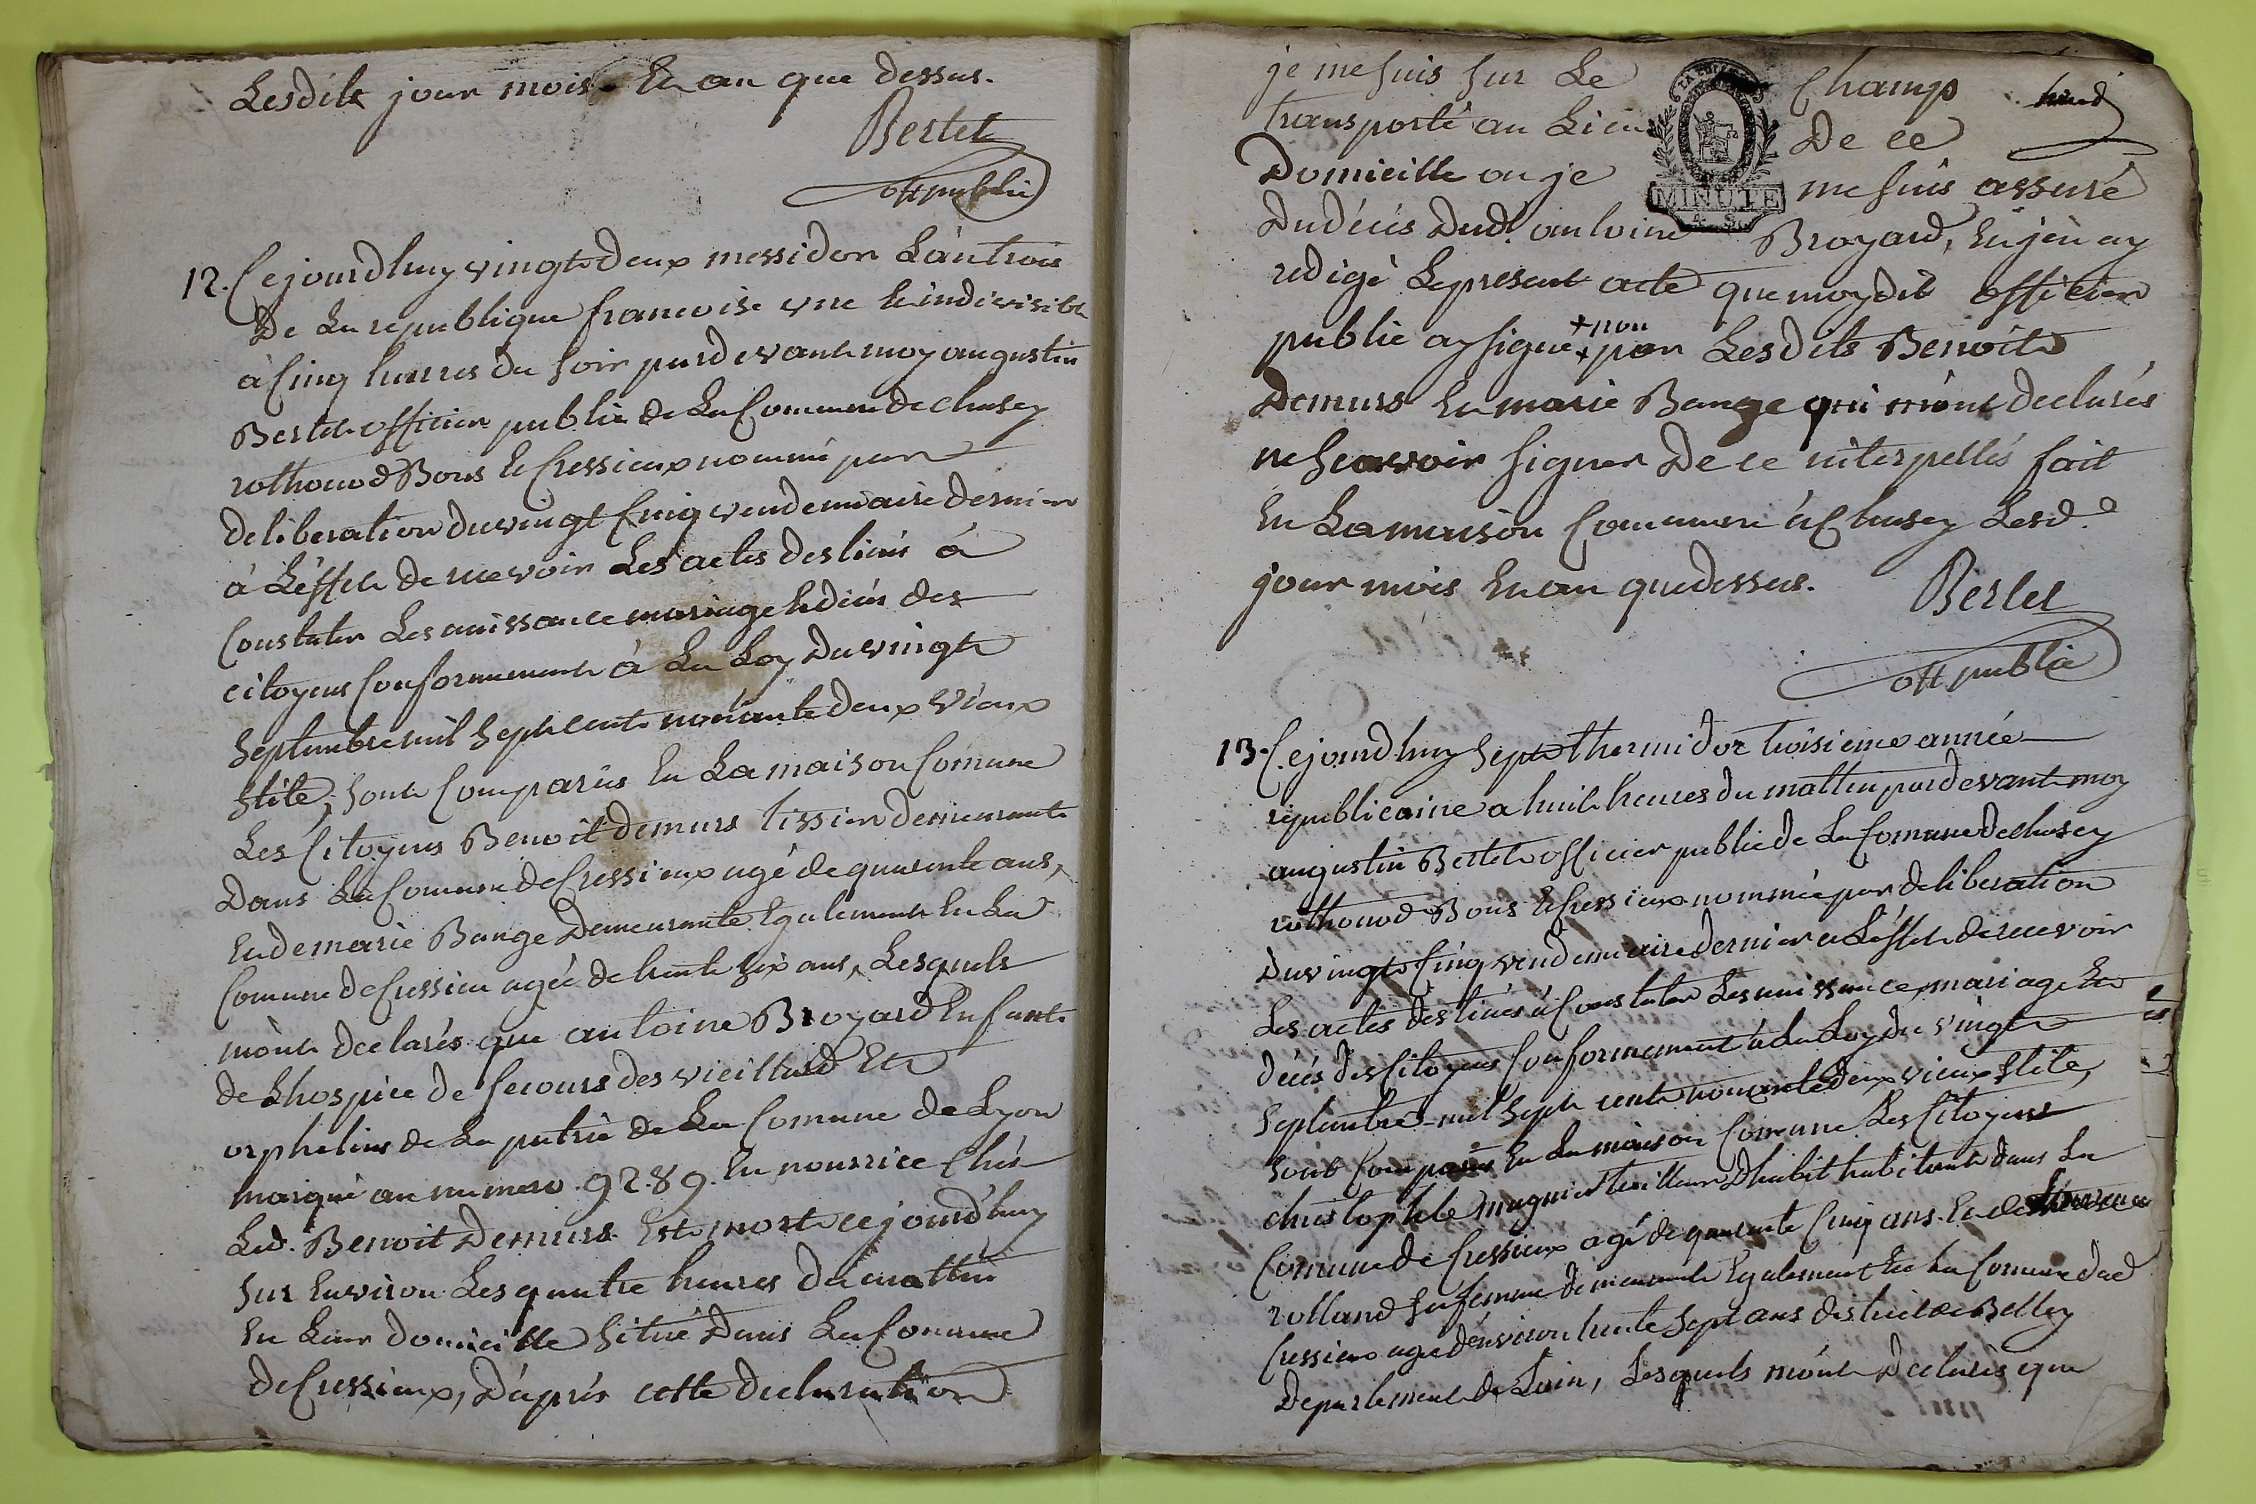 Lesdits jour mois Et an que dessus.
Bertet
off public
12. Cejourdhuy vingt deux messidor L'antrois
De La republique francoise une Et indivisible
à Cinq heures du soir pardevant moy augustin
Bertet officier public de La Commune de chasey
rothonod Bons Et Cressieux nommé par
deliberation du vingt Cinq vendemiaire dernier
à L'effet de recevoir Les actes destinés á
Constater Les naissance mariage Et décés des
citoyens Conformement à La Loy Du vingt
septembre mil sept cent nonante deux vieux
stile, sont Comparus En La maison Comune
Les Citoyens Benoit demurs tissier demeurant
Dans La Comune de Cressieux agé de quarante ans,
Et de marie Bange Demeurante Egalement En La
Comune de Cressieu agée de trente six ans, Lesquels
m'ont declarés que antoine Broyard Enfant
de Lhospice de secours des vieillard Et
orphelins de La patrie de La Comune de Lyon
marqué au numero 9289. En nourrice Chés
Led. Benoit Demurs Est mort cejourd'huy
sur Environ Les quatre heures du mattin
En Leur domicille situé Dans La Comune
de Cressieux, D'aprés cette declaration
je me suis sur Le Champ
transporté au Lieu De ce
Domicille ou je me suis assuré
MINUTE
4. S.
Du décés Dud. antoine Broyard, En j'en ay
redigé Le present acte que moydit officier
public ay signé + non
+ par Lesdits Benoit
Demurs Et marie Bange qui m'ont declarés
ne scavoir signer De ce interpellés fait
En La maison Commune à Chasey Lesd.
jour mois En an que dessus.
Bertet
off public
13. Cejourdhuy sept thermidor troisieme année
republicaine a huit heures du mattin pardevant moy
augustin Bertet officier public de La Comune de chasey
rothonod Bons Et Cressieux nommée par deliberation
Du vingt Cinq vendemiaire dernier a L'effet de recevoir
Les actes destinés à Constater Les naissance, mariage Et
décés des Citoyens Conformement à La Loy du vingt
septembre mil sept cent nonante Deux vieux stile,
sont Comparus En La maison Comune Les Citoyens
christophle mugnier tailleur D'habit habitant dans La
Comune de Cressieux agé de quarante Cinq ans Et de
rolland sa femme demeurante Egalement En La Comune dud
Cressieux agée d'environ trente sept ans district de Belley
Departement de Lain, Lesquels m'ont Declarés que